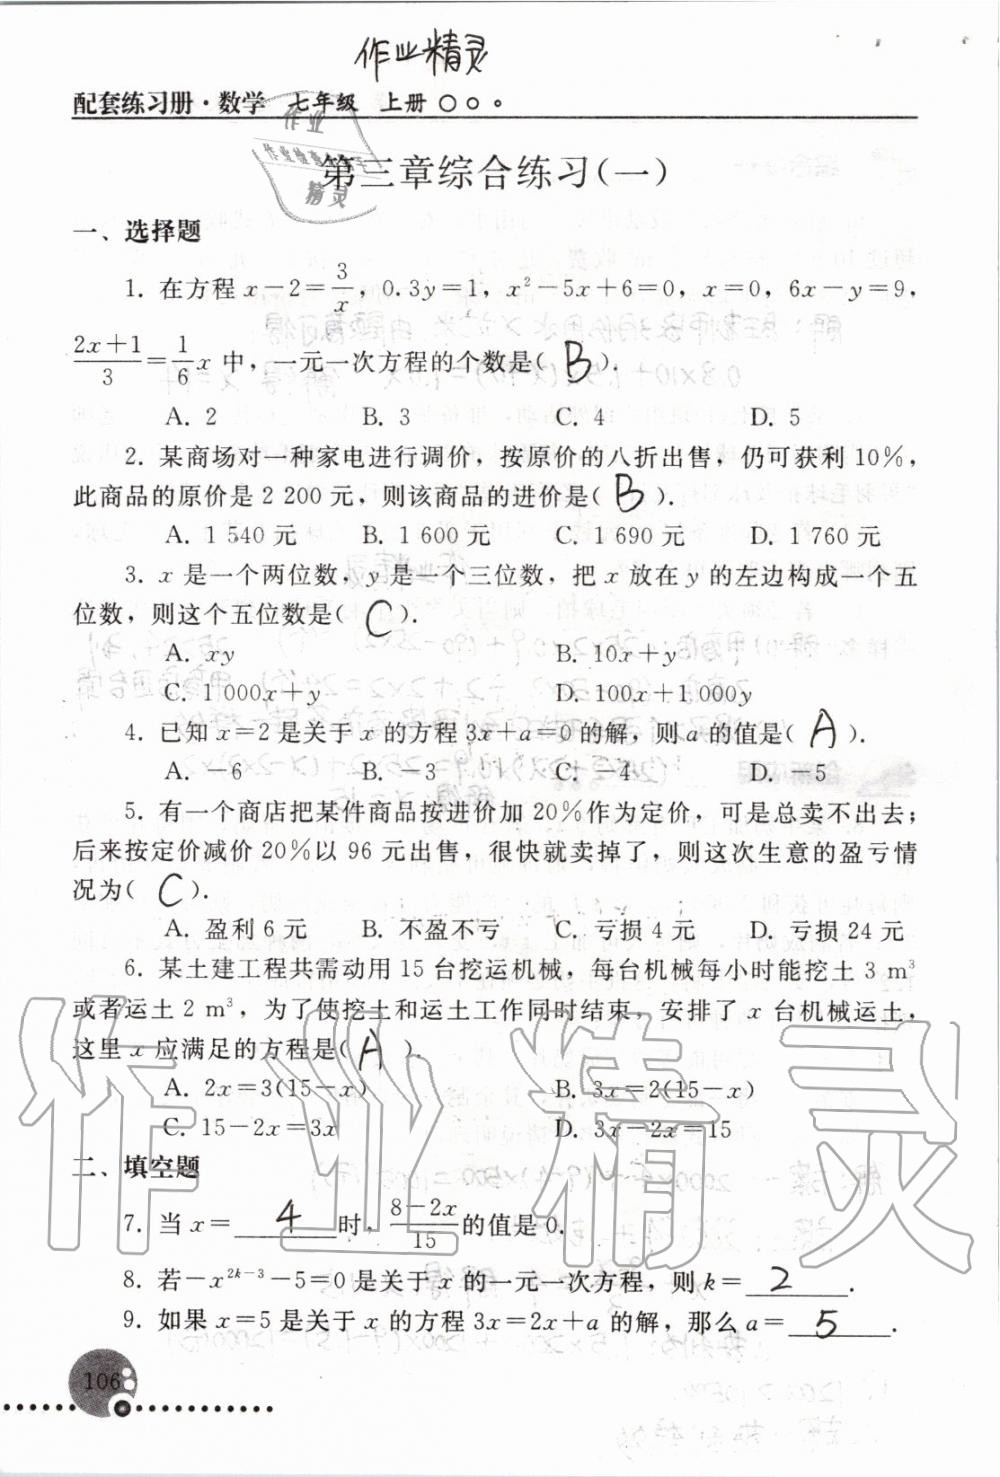 作业精灵
配套练习册·数学 七年级 上册
作业
作业检查小助手
精灵
第三章综合练习(一)
一、选择题
1. 在方程 x-2=3/x, 0.3y=1, x²-5x+6=0, x=0, 6x-y=9,
(2x+1)/3=1/6x 中,一元一次方程的个数是( B ).
A. 2 B. 3 C. 4 D. 5
2. 某商场对一种家电进行调价,按原价的八折出售,仍可获利 10%,
此商品的原价是 2 200 元,则该商品的进价是( B ).
A. 1 540 元 B. 1 600 元 C. 1 690 元 D. 1 760 元
3. x 是一个两位数, y 是一个三位数,把 x 放在 y 的左边构成一个五
位数,则这个五位数是( C ).
A. xy B. 10x+y
C. 1 000x+y D. 100x+1 000y
4. 已知 x=2 是关于 x 的方程 3x+a=0 的解,则 a 的值是( A ).
A. -6 B. -3 C. -4 D. -5
5. 有一个商店把某件商品按进价加 20%作为定价,可是总卖不出去;
后来按定价减价 20%以 96 元出售,很快就卖掉了,则这次生意的盈亏情
况为( C ).
A. 盈利 6 元 B. 不盈不亏 C. 亏损 4 元 D. 亏损 24 元
6. 某土建工程共需动用 15 台挖运机械,每台机械每小时能挖土 3 m³
或者运土 2 m³,为了使挖土和运土工作同时结束,安排了 x 台机械运土,
这里 x 应满足的方程是( A ).
A. 2x=3(15-x) B. 3x=2(15-x)
C. 15-2x=3x D. 3x-2x=15
二、填空题
7. 当 x= 4 时, (8-2x)/15 的值是 0.
8. 若-x²ᵏ⁻³-5=0 是关于 x 的一元一次方程,则 k= 2 .
9. 如果 x=5 是关于 x 的方程 3x=2x+a 的解,那么 a= 5 .
106
作业精灵